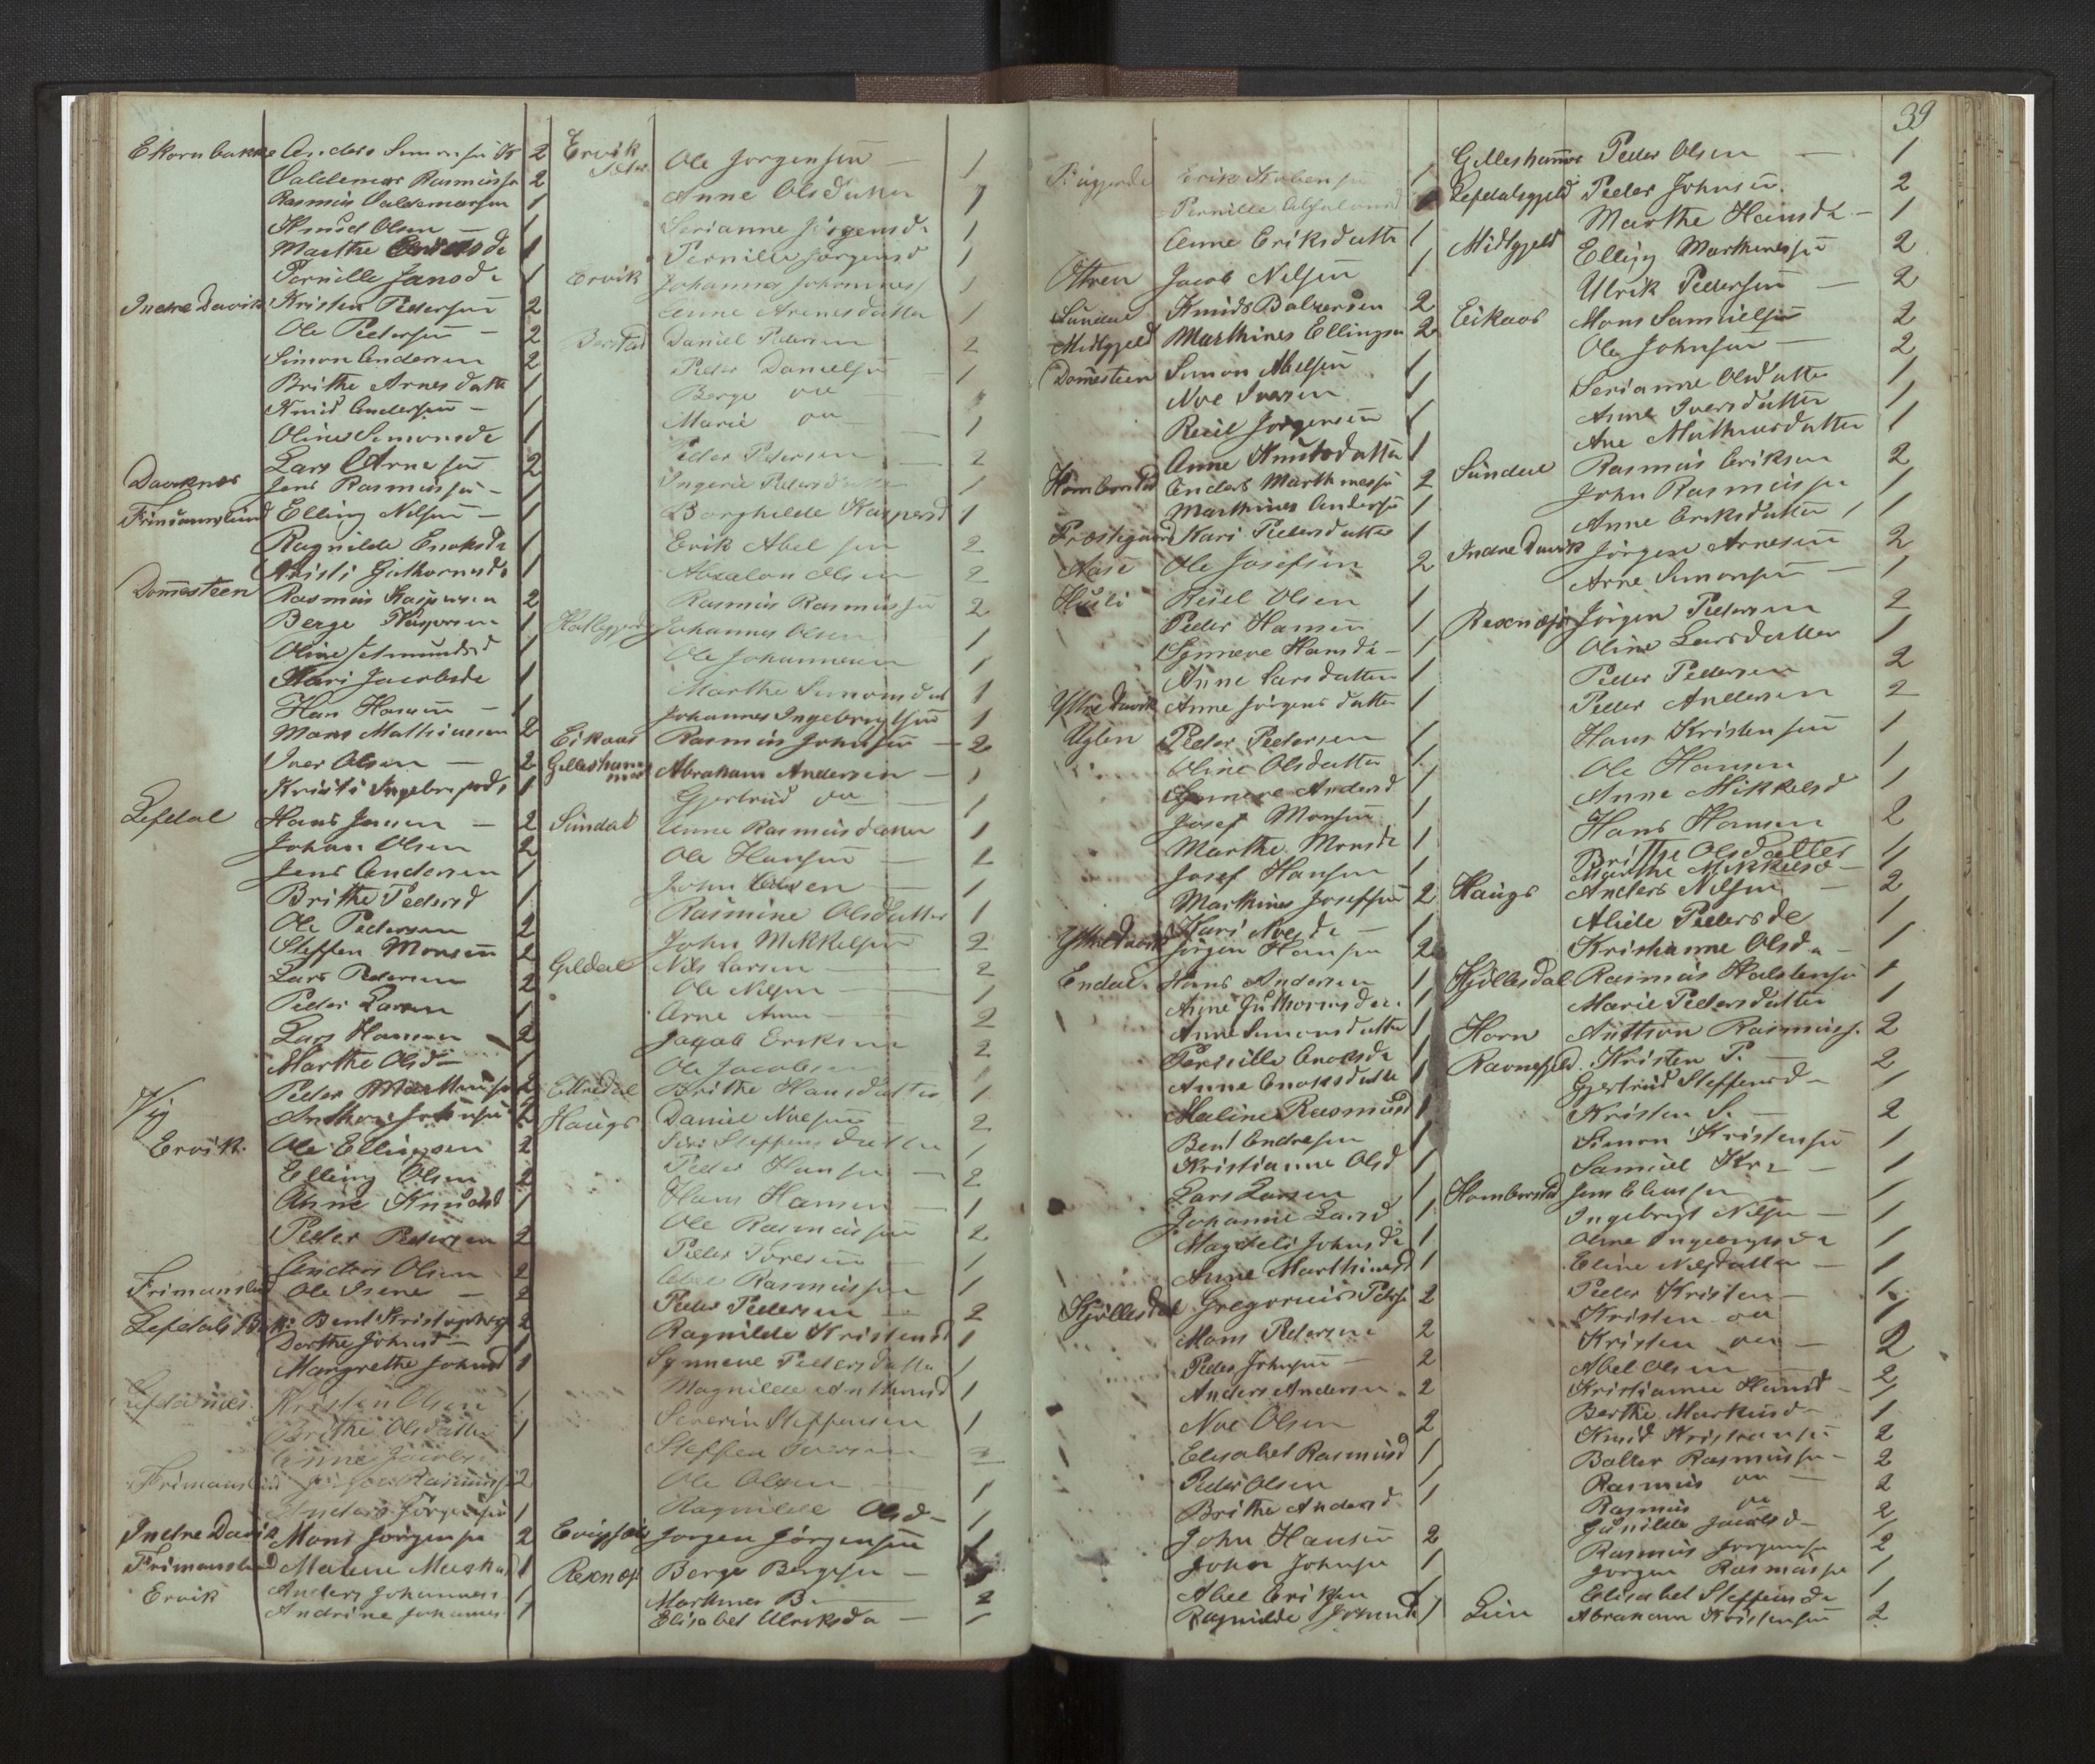 Ekornbakke Anders Simonsen 2
Valdemar Rasmuss 2
Rasmus Valdemarsen 1
Knud Olsen — 1
Marthe 1
Pernille Jansd 1
Indre Davik Kristen Pedersen 2
Ole Pedersen — 2
Simon Andersen 2
Brithe Arnesdatt 1
Knud Andersen — 1
Oline Simonsd 1
Lars Arnesen 2
Davknes Jens Rasmussen — 1
Frimanslund Elling Nilsen — 1
Ragnilde Enoksd 1
Kristi Guthormsd 1
Domesteen Rasmus Kaspersen 2
Berge Kaspersen 1
Oline Amundsd 1
Kari Jacobsd 1
Hans Hansen — 1
Mons Mathiassen 2
Iver Olsen — 2
Kristi Ingebrigtsd 1
Lefdal Hans Jensen — 2
Johan Olsen 2
Jens Andersen 1
Brithe Pedersd 1
Ole Pedersen 2
Steffen Monsen 2
Lars Pedersen 2
Peder Larsen 1
Lars Hansen 2
Marthe Olsd 1
Peder Marthinsen 2
Vig Anthon Johnsen 2
Ervik Ole Ellingsen 2
Elling Olsen 2
Anne Knudsd 1
Peder Pedersen 2
Anders Olsen 2
Frimanslund Ole Isene — 2
Lefdals Bent Kristophers 2
Dorthe Johnsd — 1
Margrethe Johnsd 1
Kristen Olsen 1
Brithe Olsdatter 1
Anne Jacobs
Frimanslund Rasmuss 2
Anders Jørgensen 1
Indre Davik Mons Jørgensen 2
Frimanslund Malene 1
Ervik Anders Johannes 1
Andrine Johannes 1
Ervik Ole Jørgensen — 1
Anne Olsdatter 1
Serianne Jørgensd 1
Pernille Jørgensd 1
Ervik Johannes Johannes 1
Anne Arnesdatter 1
Daniel Pedersen 2
Peder Danielsen — 1
Berge
Marie 1
Peder Pedersen — 2
Ingerid Pedersdatter 1
Borghilde Kaspersd 1
Erik Abelsen 2
Absalon Olsen 2
Rasmus Rasmussen 2
Johannes Olsen 1
Ole Johannesen 1
Marthe Simonsdat 1
Johannes Ingebrigtsen 1
Eikaas Rasmus Johnsen — 2
Gilleshammer Abraham Andersen — 1
Gjertrud — 1
Sundal Anne Rasmusdatter 1
Ole Hansen — 2
John Olsen — 1
Rasmine Olsdatter 1
John Mikkelsen 2
Gildal Nils Larsen — 2
Ole Nilsen — 1
Arne 2
Jacob Eriksen 2
Ole Jacobsen 1
Brithe Hansdatter 1
Haugs Daniel Noesen 2
Siri Steffensdatter 1
Peder Hansen — 2
Hans Hansen — 1
Ole Rasmussen 2
Peder Iversen — 1
Abel Rasmussen 1
Peder Pedersen — 2
Ragnilde Kristensd 1
Synneve Pedersdatter 1
Magnilde Anthonsd 1
Severin Steffensen 1
Steffen Iversen 2
Ole Olsen — 1
Ragnilde Olsd — 1
Jørgen Jørgensen 1
Rexnæs Berge Bergesen —
Marthines B. — 2
Elisabet Ulriksda — 1
39
Erik Jacobsen 1
Pernille Absalonsd 1
Anne Eriksdatter 1
Otteren Jacob Nilsen 1
Sundal Knuds Balzersen 2
Midtgjeld Marthines Ellingsen 2
Domesteen Simon Abelsen 1
Noe Iversen 1
Reiel Jørgensen 1
Anne Knutsdatter 1
Hombrstad Anders Marthinesen 2
Marthines Andersen 1
Præstegaard Kari Pedersdatter 1
Aase Ole Josefsen 2
Reiel Olsen 1
Peder Hansen 1
Synneve Hansd — 1
Anne Larsdatter 1
Ytre Davik Anne Jørgensdatter 1
Uglen Peder Pedersen 1
Oline Olsdatter 1
Synneve Andersd 1
Josef Monsen 1
Marthe Monsd 1
Josef Hansen 1
Marthines Josefsen 2
Kari Noesd — 1
Ytre Davik Jørgen Hansen 2
Endal Hans Andersen 1
Anne Guthormsd 1
Anne Simonsdatter 1
Pernille Enoksd 1
Anne Enoksdatt 1
Maline Rasmusd 1
Bent Andresen 1
Kristianne Olsd 1
Lars Larsen 1
Johanne Larsd 1
Magdeli Johnsd 1
Anne Marthinesd 1
Hjøllesdal Gregorius Peders 2
Mons Pedersen 2
Peder Johnsen — 2
Anders Andersen 2
Noe Olsen 2
Elisabet Rasmusd 1
Peder Olsen 1
Brithe Andersd 1
John Hansen 2
John Johnsen 1
Abel Eriksen 1
Ragnilde 1
Gilleshammer Peder Olsen — 1
Lefdalsgjeld Peder Johnsen 2
Marthe Hansd — 1
Midtgjeld Elling Marthinessen 2
Ulrik Pedersen — 2
Eikaas Mons Samuelsen 2
Ole Johnsen — 2
Serianne Olsdatter 1
Anne Iversdatter 1
Ane Mathiasdatter 1
Sundal Rasmus Eriksen 2
John Rasmussen 1
Anne Eriksdatter 1
Indre Davik Jørgen Arnesen 2
Arne Simonsen — 1
Rexnæs Jørgen Pedersen 2
Oline Larsdatter 1
Peder Pedersen 2
Peder Andersen 2
Hans Kristensen 1
Ole Hansen 1
Anne Mikkelsd 1
Hans Hansen 2
Brithe Olsdatter 1
Marthe Mikkelsd — 1
Haugs Anders Nilsen — 2
Alide Pedersd 1
Kristianne Olsd — 1
Hjøllesdal Rasmus Halstensen 1
Marie Pedersdatter 1
Horn Anthon Rasmuss. 2
Ravnefjeld Kristen P. — 2
Gjertrud Steffensd — 1
Kristen S. — 2
Simon Kristensen 1
Samuel Kr. — 1
Hombrstad Jens Eliassen 1
Ingebrigt Nilsen — 1
Oline Ingebrigtsd 1
Eline Nilsdatter — 1
Peder Kristen — 1
Kristen 1
Kristen — 2
Abel Olsen — 2
Kristianne Hansd — 1
Berthe Markusd — 1
Knud Kristiansen 2
Balter Rasmussen — 2
Rasmus — 2
Rasmus 2
Gunilde Jacobsd — 1
Rasmus Jørgensen 2
Jørgen Rasmussen 1
Elisabet Steffensd 1
Lien Abraham Kristensen 2